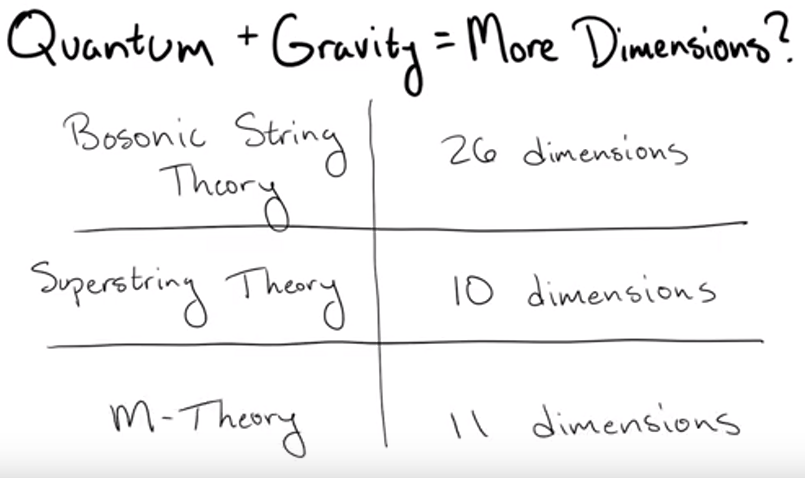 Quantum + Gravity = More Dimensions?
Bosonic String
Theory
26 dimensions
Superstring Theory
10 dimensions
M-Theory
11 dimensions